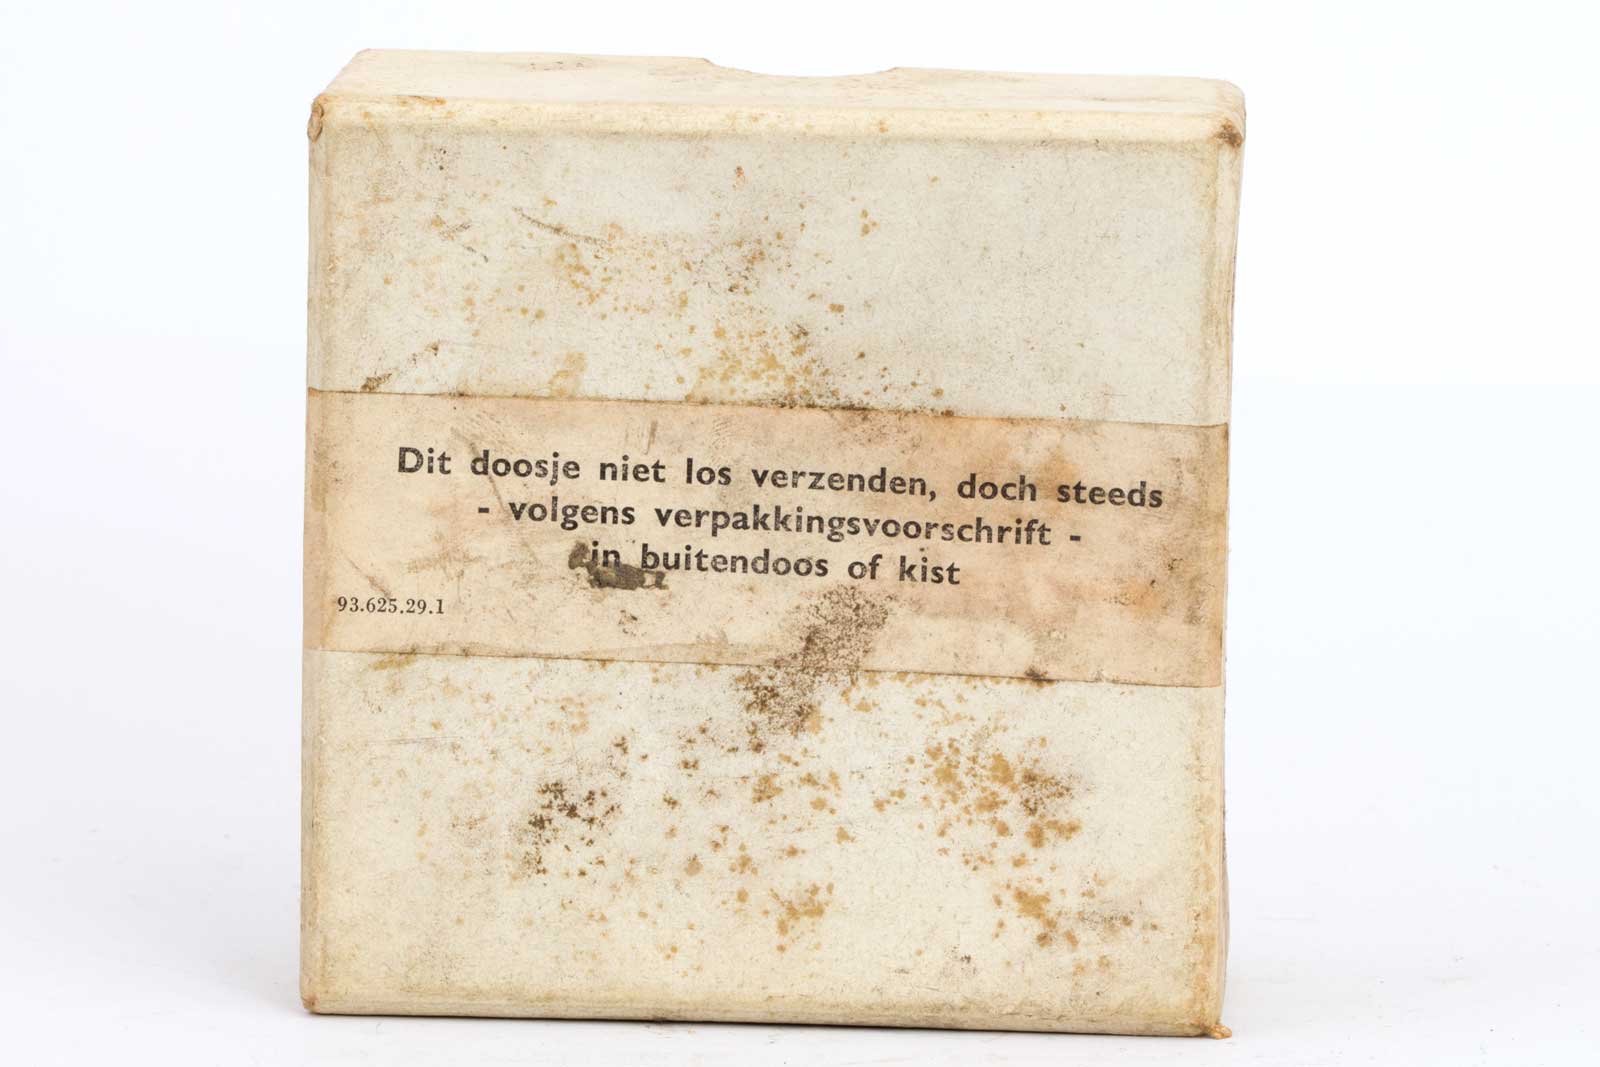 Dit doosje niet los verzenden, doch steeds
- volgens verpakkingsvoorschrift -
in buitendoos of kist
93.625.29.1